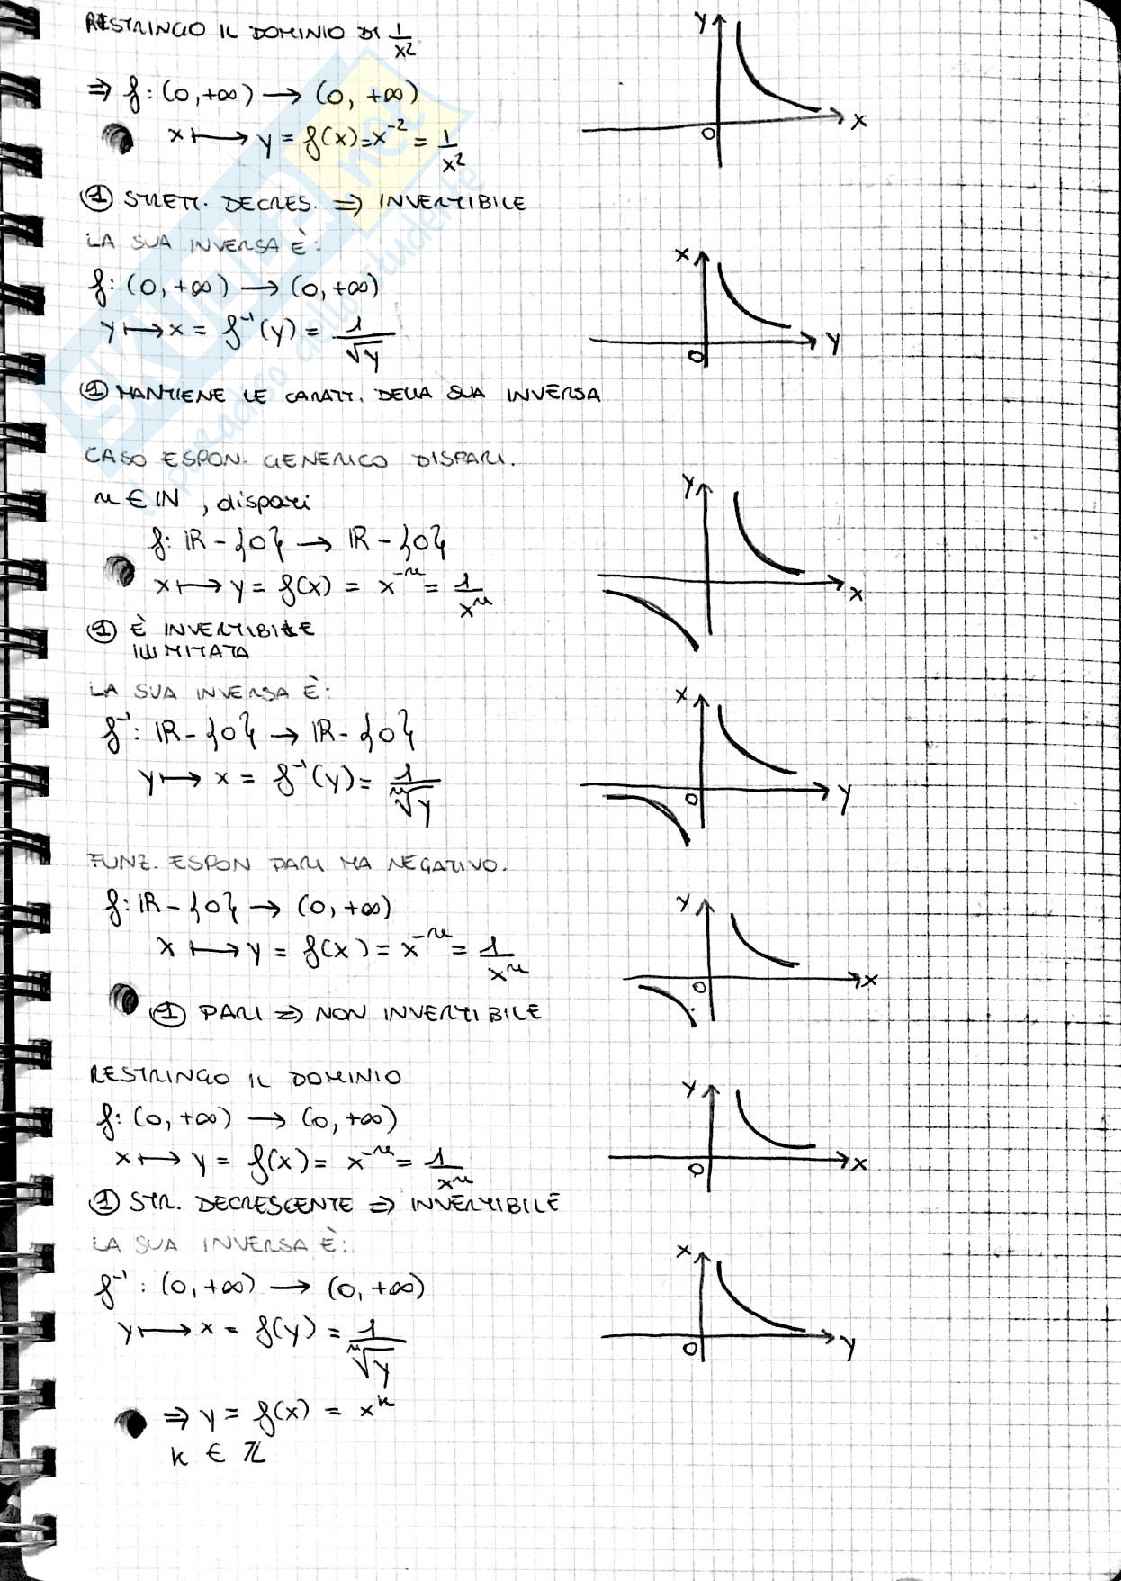 RESTRINGO IL DOMINIO DI 1/x²
⇒ f: (0,+∞) → (0, +∞)
x ↦ y = f(x) = x⁻² = 1/x²
① STRETT. DECRES. ⇒ INVERTIBILE
LA SUA INVERSA È:
f: (0,+∞) → (0,+∞)
y ↦ x = f⁻¹(y) = 1/√y
① MANTIENE LE CARATT. DELLA SUA INVERSA
CASO ESPON. GENERICO DISPARI.
n ∈ IN , dispari
f: IR - {0} → IR - {0}
x ↦ y = f(x) = x⁻ⁿ = 1/xⁿ
① È INVERTIBILE
ILLIMITATA
LA SUA INVERSA È:
f⁻¹: IR - {0} → IR - {0}
y ↦ x = f⁻¹(y) = 1/ⁿ√y
FUNZ. ESPON PARI MA NEGATIVO.
f: IR - {0} → (0, +∞)
x ↦ y = f(x) = x⁻ⁿ = 1/xⁿ
① PARI ⇒ NON INVERTIBILE
RESTRINGO IL DOMINIO
f: (0, +∞) → (0, +∞)
x ↦ y = f(x) = x⁻ⁿ = 1/xⁿ
① STR. DECRESCENTE ⇒ INVERTIBILE
LA SUA INVERSA È:
f⁻¹: (0, +∞) → (0, +∞)
y ↦ x = f(y) = 1/ⁿ√y
⇒ y = f(x) = xᵏ
k ∈ ℤ
y
0
x
x
0
y
y
x
x
0
y
y
0
x
y
0
x
x
0
y